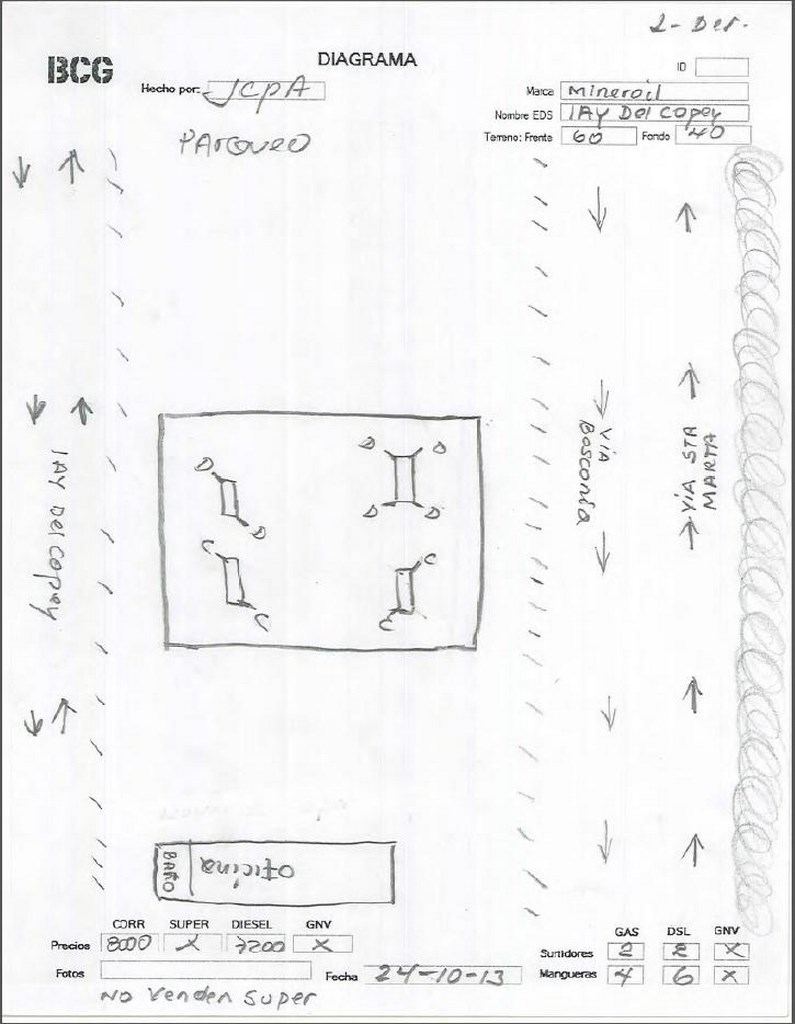 2 - Der.
BCG
DIAGRAMA
ID
Hecho por: JCPA
Marca Mineroil
Nombre EDS IAY Del Copey
Terreno: Frente 60 Fondo 40
PARQUEO
D D D
D D D
C C
C C
IAY Del Copey
VIA Bosconia
VIA STA MARTA
BAÑO oficina
CORR SUPER DIESEL GNV
Precios 8000 X 7200 X
Fotos
Fecha 24-10-13
No Venden Super
GAS DSL GNV
Surtidores 2 2 X
Mangueras 4 6 X